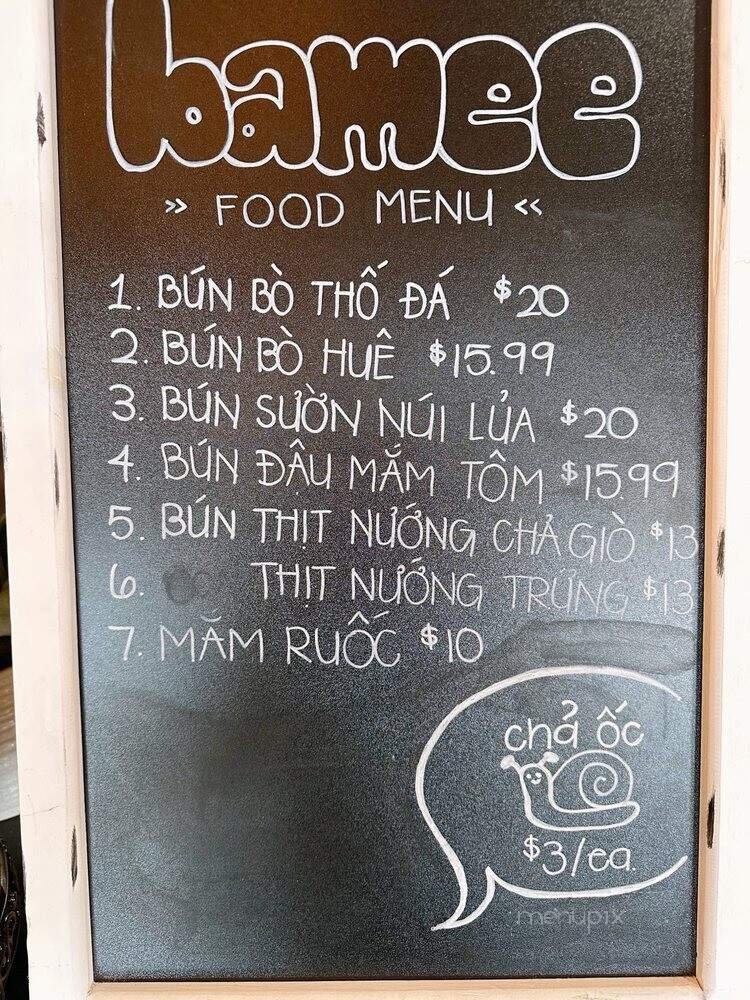 bamee
» FOOD MENU «
1. BÚN BÒ THỐ ĐÁ $20
2. BÚN BÒ HUÊ $15.99
3. BÚN SƯỜN NÚI LỦA $20
4. BÚN ĐẬU MẮM TÔM $15.99
5. BÚN THỊT NƯỚNG CHẢ GIÒ $13
6. THỊT NƯỚNG TRỨNG $13
7. MẮM RUỐC $10
chả ốc
$3/ea.
menupix